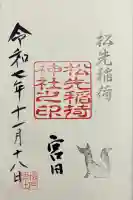 松先稲荷
松先稲荷
神社之印
宮日
令和七年十一月十八日